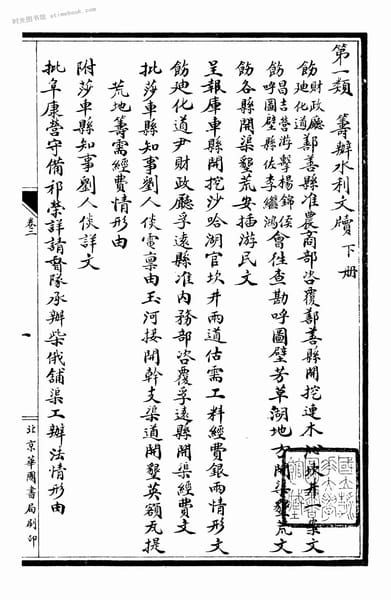 第一類 籌辦水利文牘下册
飭財政廳迪化道鄯善縣准農商部咨覆鄯善縣開挖連木沁坎井一案文
飭昌吉營游擊楊錦侯呼圖壁縣佐李繼鴻會往查勘呼圖壁芳草湖地方開渠墾荒文
飭各縣開渠墾荒安插游民文
呈報庫車縣開挖沙哈湖官坎井兩道估需工料經費銀兩情形文
飭迪化道尹財政廳孚遠縣准内務部咨覆孚遠縣開渠經費文
批莎車縣知事劉人倓電稟由玉河接開幹支渠道開墾英額瓦提
荒地籌需經費情形由
附莎車縣知事劉人倓詳文
批阜康營守備祁榮詳請督隊承辦柴俄舖渠工辦法情形由
卷二
一
北京華國書局刷印
时光图书馆 stimebook.com